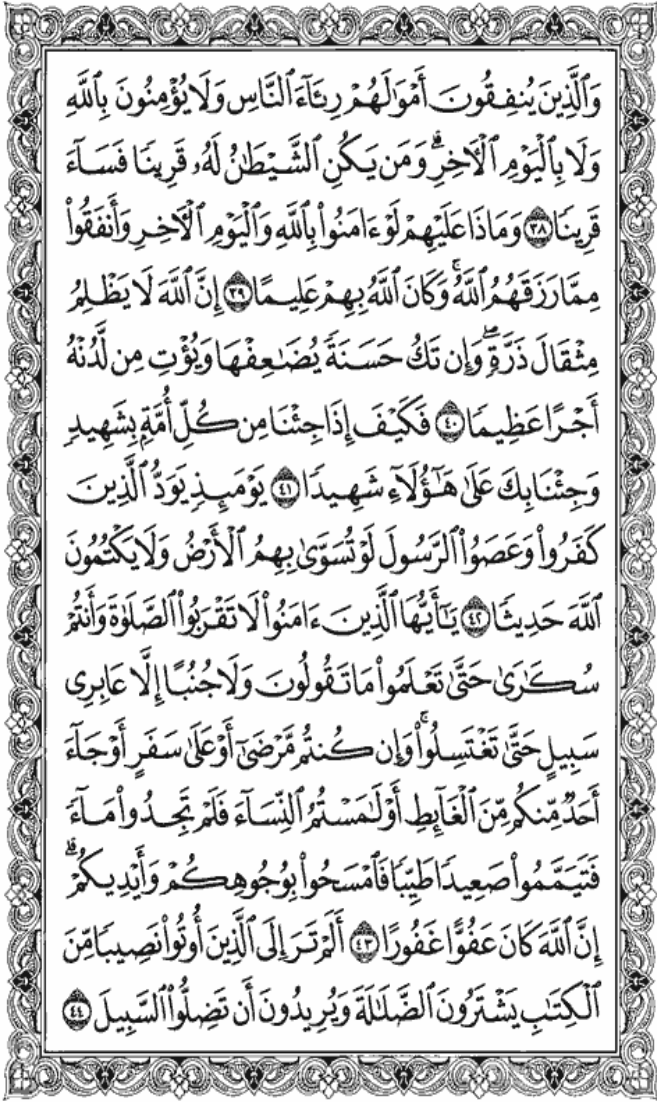 وَٱلَّذِينَ يُنفِقُونَ أَمْوَٰلَهُمْ رِئَآءَ ٱلنَّاسِ وَلَا يُؤْمِنُونَ بِٱللَّهِ
وَلَا بِٱلْيَوْمِ ٱلْـَٔاخِرِ ۗ وَمَن يَكُنِ ٱلشَّيْطَـٰنُ لَهُۥ قَرِينًا فَسَآءَ
قَرِينًا ٣٨ وَمَاذَا عَلَيْهِمْ لَوْ ءَامَنُوا۟ بِٱللَّهِ وَٱلْيَوْمِ ٱلْـَٔاخِرِ وَأَنفَقُوا۟
مِمَّا رَزَقَهُمُ ٱللَّهُ ۚ وَكَانَ ٱللَّهُ بِهِمْ عَلِيمًا ٣٩ إِنَّ ٱللَّهَ لَا يَظْلِمُ
مِثْقَالَ ذَرَّةٍ ۖ وَإِن تَكُ حَسَنَةً يُضَـٰعِفْهَا وَيُؤْتِ مِن لَّدُنْهُ
أَجْرًا عَظِيمًا ٤٠ فَكَيْفَ إِذَا جِئْنَا مِن كُلِّ أُمَّةٍۭ بِشَهِيدٍ
وَجِئْنَا بِكَ عَلَىٰ هَـٰٓؤُلَآءِ شَهِيدًا ٤١ يَوْمَئِذٍ يَوَدُّ ٱلَّذِينَ
كَفَرُوا۟ وَعَصَوُا۟ ٱلرَّسُولَ لَوْ تُسَوَّىٰ بِهِمُ ٱلْأَرْضُ وَلَا يَكْتُمُونَ
ٱللَّهَ حَدِيثًا ٤٢ يَـٰٓأَيُّهَا ٱلَّذِينَ ءَامَنُوا۟ لَا تَقْرَبُوا۟ ٱلصَّلَوٰةَ وَأَنتُمْ
سُكَـٰرَىٰ حَتَّىٰ تَعْلَمُوا۟ مَا تَقُولُونَ وَلَا جُنُبًا إِلَّا عَابِرِى
سَبِيلٍ حَتَّىٰ تَغْتَسِلُوا۟ ۚ وَإِن كُنتُم مَّرْضَىٰٓ أَوْ عَلَىٰ سَفَرٍ أَوْ جَآءَ
أَحَدٌ مِّنكُم مِّنَ ٱلْغَآئِطِ أَوْ لَـٰمَسْتُمُ ٱلنِّسَآءَ فَلَمْ تَجِدُوا۟ مَآءً
فَتَيَمَّمُوا۟ صَعِيدًا طَيِّبًا فَٱمْسَحُوا۟ بِوُجُوهِكُمْ وَأَيْدِيكُمْ ۗ
إِنَّ ٱللَّهَ كَانَ عَفُوًّا غَفُورًا ٤٣ أَلَمْ تَرَ إِلَى ٱلَّذِينَ أُوتُوا۟ نَصِيبًا مِّنَ
ٱلْكِتَـٰبِ يَشْتَرُونَ ٱلضَّلَـٰلَةَ وَيُرِيدُونَ أَن تَضِلُّوا۟ ٱلسَّبِيلَ ٤٤